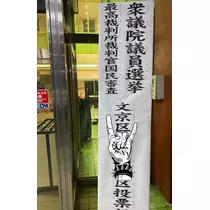 衆議院議員選挙
最高裁判所裁判官国民審査
文京区
区投票